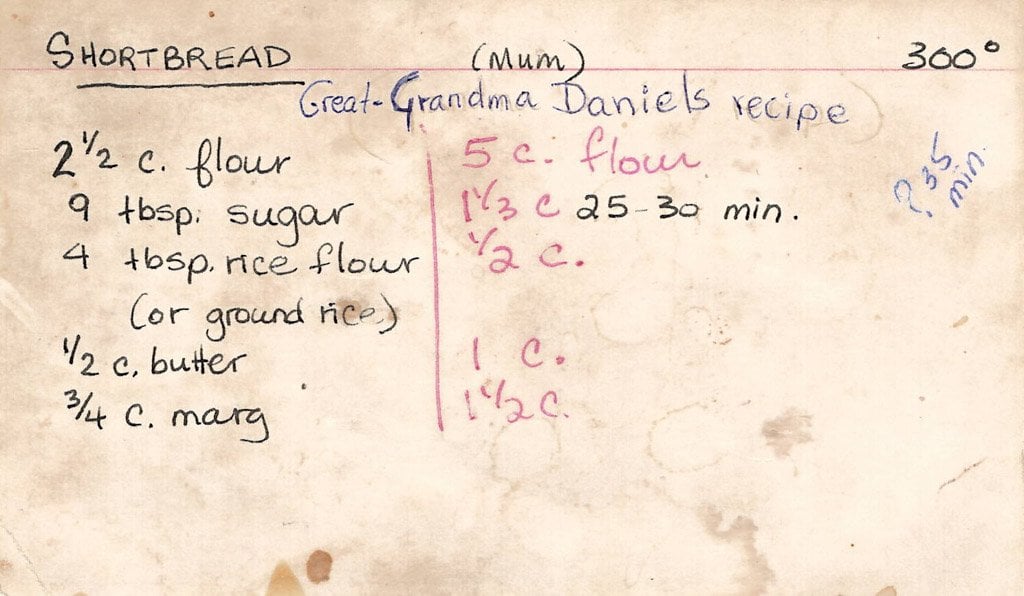 SHORTBREAD (Mum) 300°
Great-Grandma Daniels recipe
2 1/2 c. flour 5 c. flour
? 35 min.
9 tbsp. sugar 1 1/3 c 25-30 min.
4 tbsp. rice flour 1/2 c.
(or ground rice)
1/2 c. butter 1 c.
3/4 c. marg 1 1/2 c.